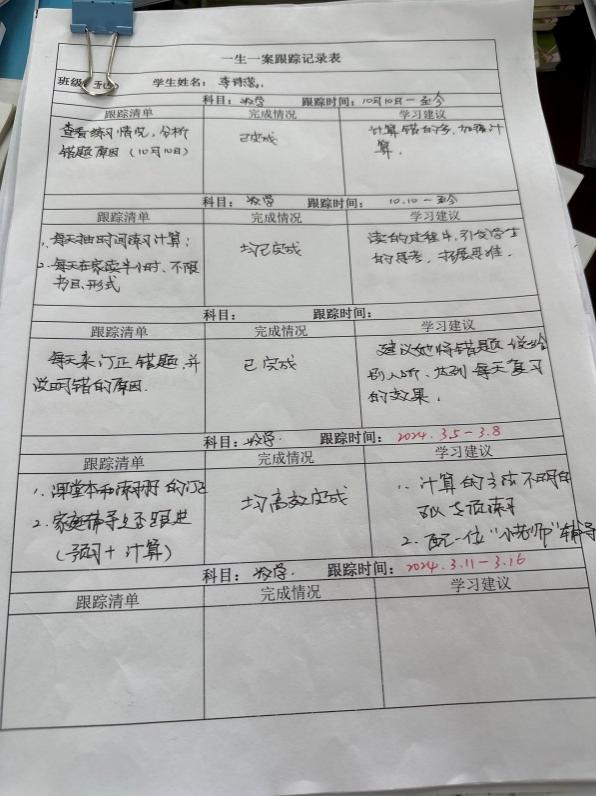 一生一案跟踪记录表
班级 学生姓名：李
科目：数学 跟踪时间：10月10日—至今
跟踪清单 完成情况 学习建议
查看练习情况，分析
错题原因（10月10日）
已完成
计算错的多，加强计
算．
科目：数学 跟踪时间： 10.10—至今
跟踪清单 完成情况 学习建议
1、每天抽时间练习计算；
2、每天在家读半小时、不限
书目、形式
均已完成
读的过程中，引发学生
的思考，拓展思维．
科目： 跟踪时间：
跟踪清单 完成情况 学习建议
每天来订正错题，并
说明错的原因．
已完成
建议她将错题说给
别人听，达到每天复习
的效果．
科目：数学． 跟踪时间：2024.3.5—3.8
跟踪清单 完成情况 学习建议
1、课堂本和练习册的订正
2、家庭辅导是否跟进
（预习+计算）
均高效完成
1、计算的方法不明白
可以专项练习
2、配一位“小老师”辅导
科目：数学． 跟踪时间：2024.3.11—3.16
跟踪清单 完成情况 学习建议